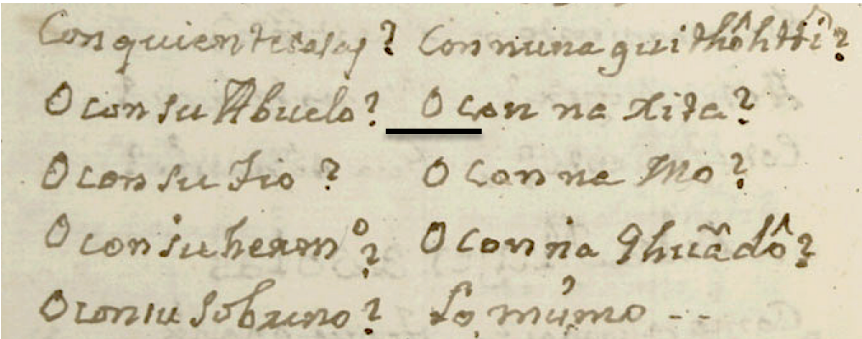 Con quien te casas? Con nuna gui thôhttî?
O con su Abuelo? O con na xita?
O con su tio? O con na Mo?
O con su herm.º? O con na qhuãdô?
O con su sobrino? Lo mismo --